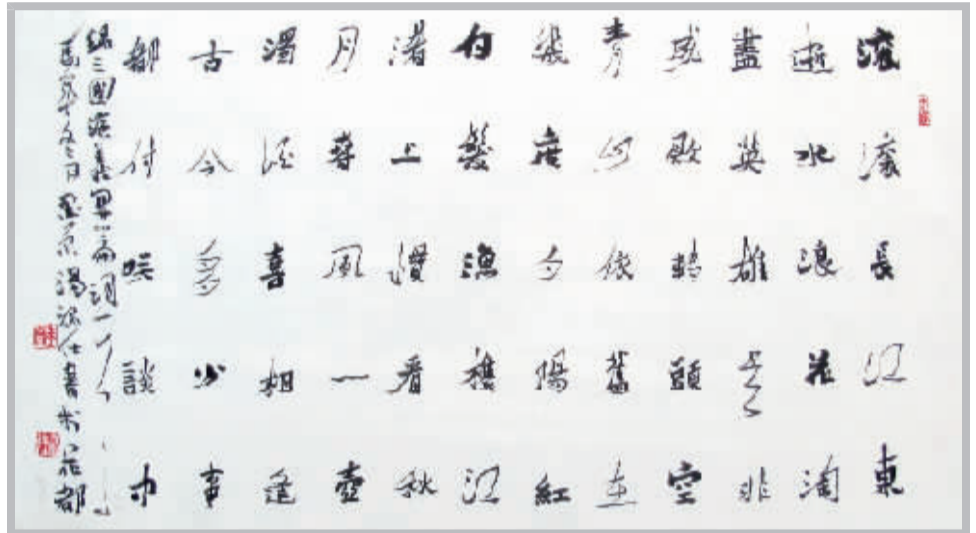 滾滾長江東
逝水浪花淘
盡英雄是非
成敗轉頭空
青山依舊在
幾度夕陽紅
白髮漁樵江
渚上慣看秋
月春風一壺
濁酒喜相逢
古今多少事
都付笑談中
錄三國演義開篇詞一
冬日 書於花都